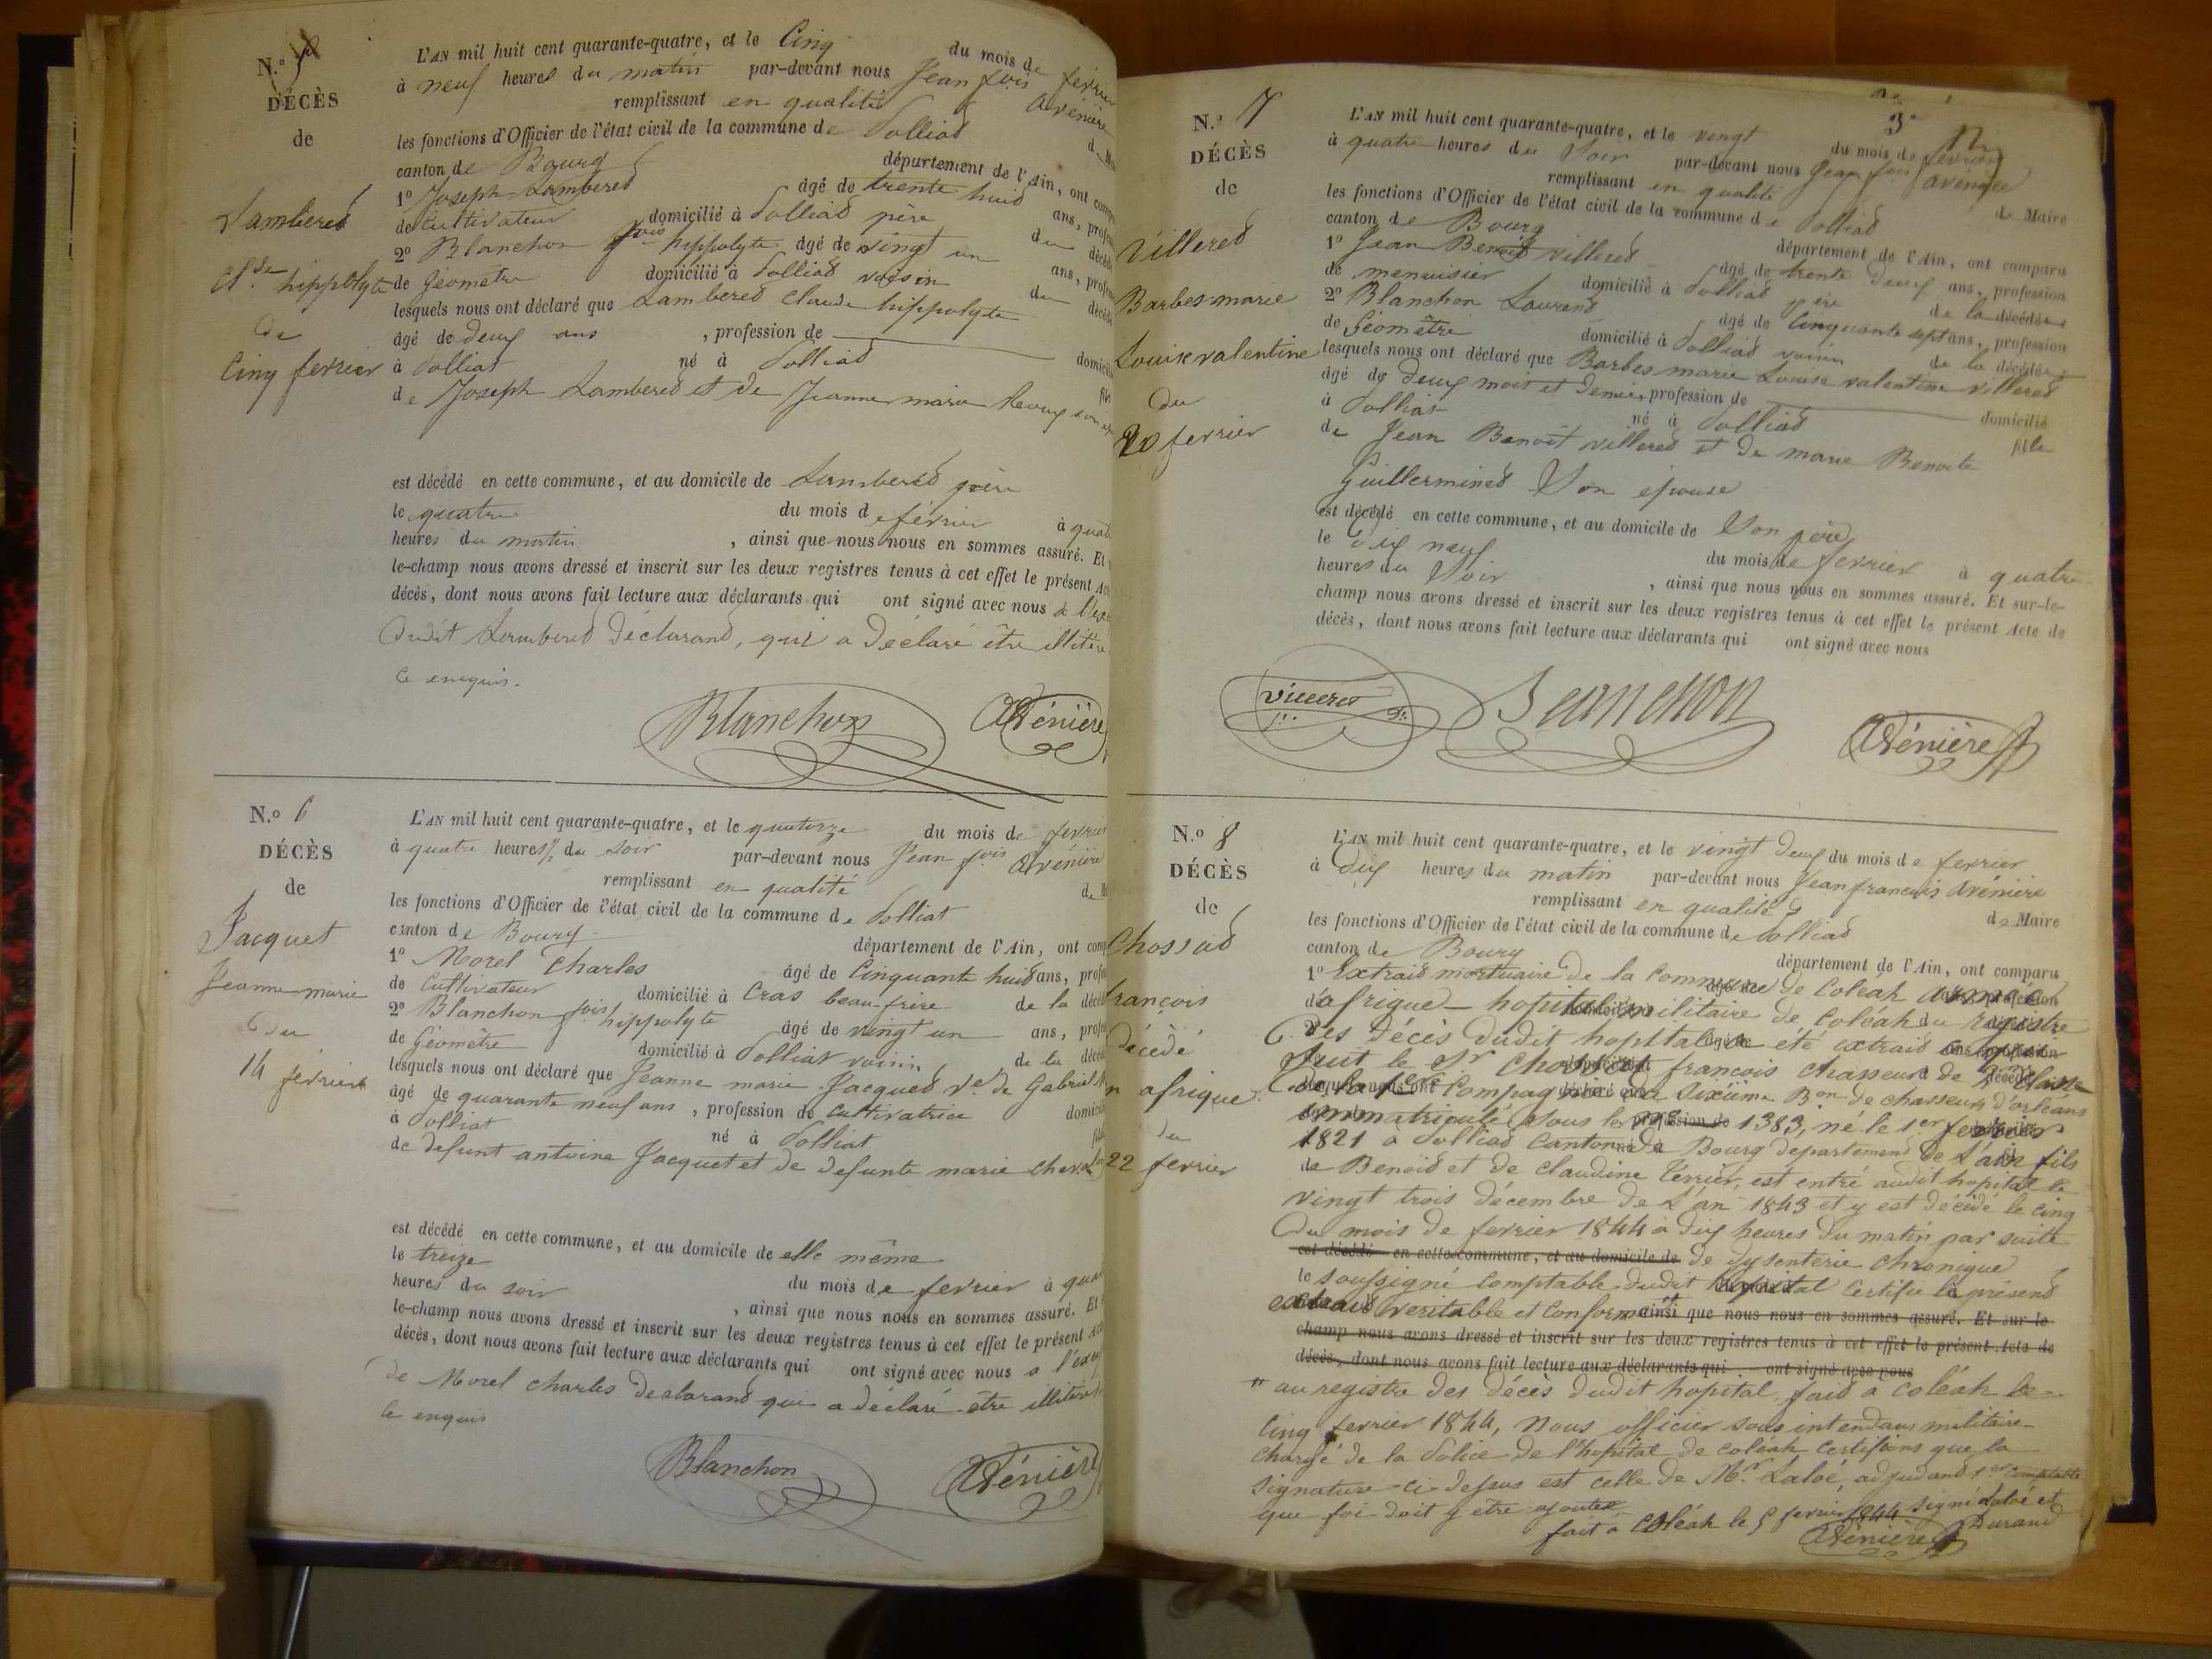 N.º 5
DÉCÈS
de
Lambered
Cl.de hippolyte
du
Cinq ferrier
L'AN mil huit cent quarante-quatre, et le Cinq du mois de ferrier
à neuf heures du matin par-devant nous Jean fois Avénière
remplissant en qualité d
les fonctions d'Officier de l'état civil de la commune de Polliad
canton de Bourg département de l'Ain, ont comp
1º Joseph Lambered âgé de trente huid ans, profes
de Cultivateur domicilié à Polliad père du décédé
2º Blanchon fois hippolyte âgé de vingt un ans, profes
de Géometre domicilié à Polliad voisin du décédé
lesquels nous ont déclaré que Lambered Claude hippolyte
âgé de deux ans , profession de
à Polliat né à Polliad domicilié
de Joseph Lambered et de Jeanne marie
est décédé en cette commune, et au domicile de Lambered père
le quatre du mois de ferrier à quat
heures du matin , ainsi que nous nous en sommes assuré. Et
le-champ nous avons dressé et inscrit sur les deux registres tenus à cet effet le présent Ac
décès, dont nous avons fait lecture aux déclarants qui ont signé avec nous à l'ex
Dudit Lambered déclarand, qui a déclaré être illitéré
Ce enquis.
Blanchon AVénière
N.º 6
DÉCÈS
de
Jacquet
Jeanne marie
Du
14 ferrier
L'AN mil huit cent quarante-quatre, et le quatorze du mois de ferrier
à quatre heures 1/2 du soir par-devant nous Jean fois Avénière
remplissant en qualité
les fonctions d'Officier de l'état civil de la commune de Polliat
canton de Bourg département de l'Ain, ont comp
1º Morel Charles âgé de Cinquante huid ans, profes
de Cultivateur domicilié à Cras beau-frère de la décé
2º Blanchon fois hippolyte âgé de vingt un ans, profes
de Géomètre domicilié à Polliat voisin de la décé
lesquels nous ont déclaré que Jeanne marie Jacqued ve. de Gabriel
âgé de quarante neuf ans , profession de Cultivatrice domicili
à Polliat né à Polliat
de defunt antoine Jacquet et de defunte marie
est décédé en cette commune, et au domicile de elle même
le treize du mois de ferrier à qua
heures du soir , ainsi que nous nous en sommes assuré. Et
le-champ nous avons dressé et inscrit sur les deux registres tenus à cet effet le présent Ac
décès, dont nous avons fait lecture aux déclarants qui ont signé avec nous a l'ex
de Morel charles declarand qui a déclaré être illitéré
Ce enquis
Blanchon AVénière
3
N.º 7
DÉCÈS
de
Villered
Barbes marie
Louise valentine
Du
20 ferrier
L'AN mil huit cent quarante-quatre, et le vingt du mois de ferrier
à quatre heures du Soir par-devant nous Jean fois avénière
remplissant en qualité de Maire
les fonctions d'Officier de l'état civil de la commune de Polliad
canton de Bourg département de l'Ain, ont comparu
1º Jean Benoit villered âgé de trente deux ans, profession
de menuisier domicilié à Polliad père de la décédée
2º Blanchon Laurend âgé de Cinquante sept ans, profession
de Géomètre domicilié à Polliad voisin de la décédée
lesquels nous ont déclaré que Barbes marie Louise valentine villered
âgé de deux mois et demie, profession de domicilié
à Polliat né à Polliad fille
de Jean Benoit villered et de marie Benoite
Guillermined Son épouse
est décédé en cette commune, et au domicile de Son père
le dix neuf du mois de ferrier à quatre
heures du Soir , ainsi que nous nous en sommes assuré. Et sur-le-
champ nous avons dressé et inscrit sur les deux registres tenus à cet effet le présent Acte de
décès, dont nous avons fait lecture aux déclarants qui ont signé avec nous
Villered Blanchon AVénière
N.º 8
DÉCÈS
de
Chossad
françois
décédé
en afrique
du
22 ferrier
L'AN mil huit cent quarante-quatre, et le vingt deux du mois de ferrier
à Dix heures du matin par-devant nous Jean françois Avénière
remplissant en qualité de Maire
les fonctions d'Officier de l'état civil de la commune de Polliad
canton de Bourg département de l'Ain, ont comparu
1º Extraid mortuaire de la Commune de Coléah armée
d'afrique hopital militaire de Coléah du registre
Des Décès dudit hopital a été extraid ce qui
Suit le Sr Chossat françois chasseur de 2e Classe
de la 1ere Compagnie du Sixième Bon de chasseurs d'orléans
immatriculé Sous le no 1383, né le 1er ferrier
1821 à Polliad Canton de Bourg departement de L'ain fils
de Benoid et de Claudine Terrier, est entré audit hopital le
vingt trois décembre de L'an 1843 et y est décédé le cinq
Du mois de ferrier 1844 à dix heures du matin par suite
est décédé en cette commune, et au domicile de de dysenterie chronique
le soussigné Comptable dudit hopital Certifie le présend
extraid veritable et Conforme ainsi que nous nous en sommes assuré. Et sur-le-
champ nous avons dressé et inscrit sur les deux registres tenus à cet effet le présent Acte de
décès, dont nous avons fait lecture aux déclarants qui ont signé avec nous
au registre des décès dudit hopital, faid a coléah le
Cinq ferrier 1844, Nous officier Sous intendans militaire
chargé de la Police de l'hopital de coléah Certifions que la
Signature ci dessus est celle de Mr Laloé, adjudand 1er comptable
que foi doit y être ajoutée
fait à Coléah le 5 ferrier 1844 signé Laloé et
Durand
AVénière